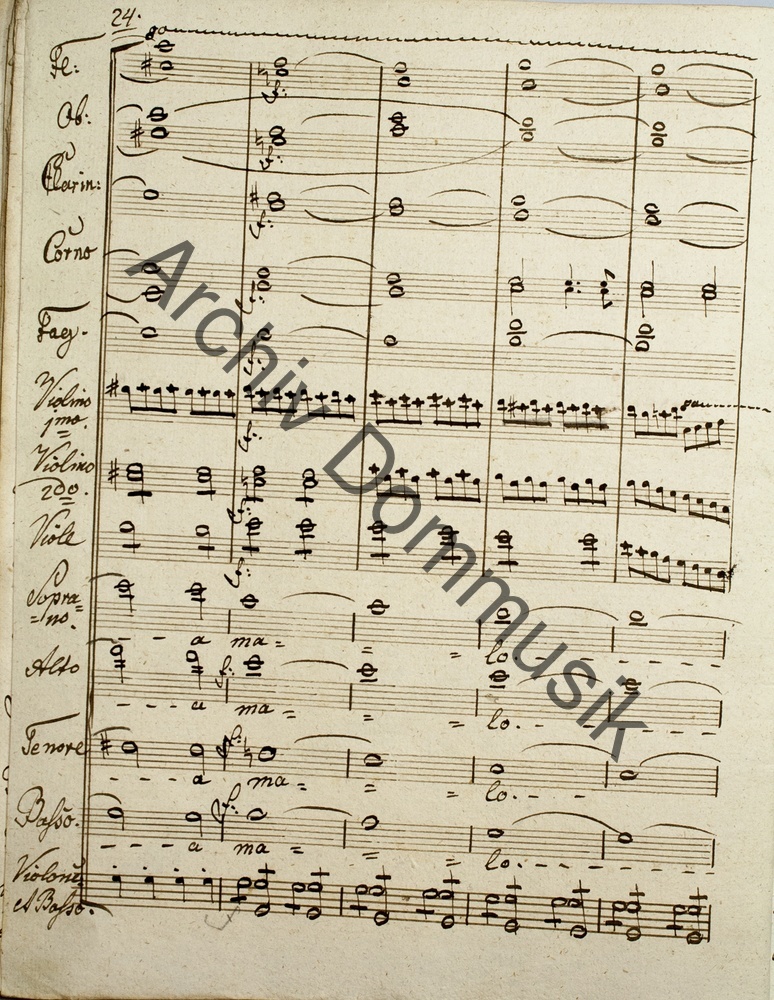 24.
8va
Fl:
Ob:
Clarin:
Corno
Fag.
Violino
1mo.
Violino
2do.
Viole
Sopra=
=no.
- - a ma = = = lo. - - - - - -
Alto
f:
- - - - a ma = = = lo. - - - -
Tenore
f:
- - - - a ma = = = lo. - - -
Basso.
f:
- - - - a ma = = = lo. - - - - - -
Violone
et Basso.
Archiv Dommusik